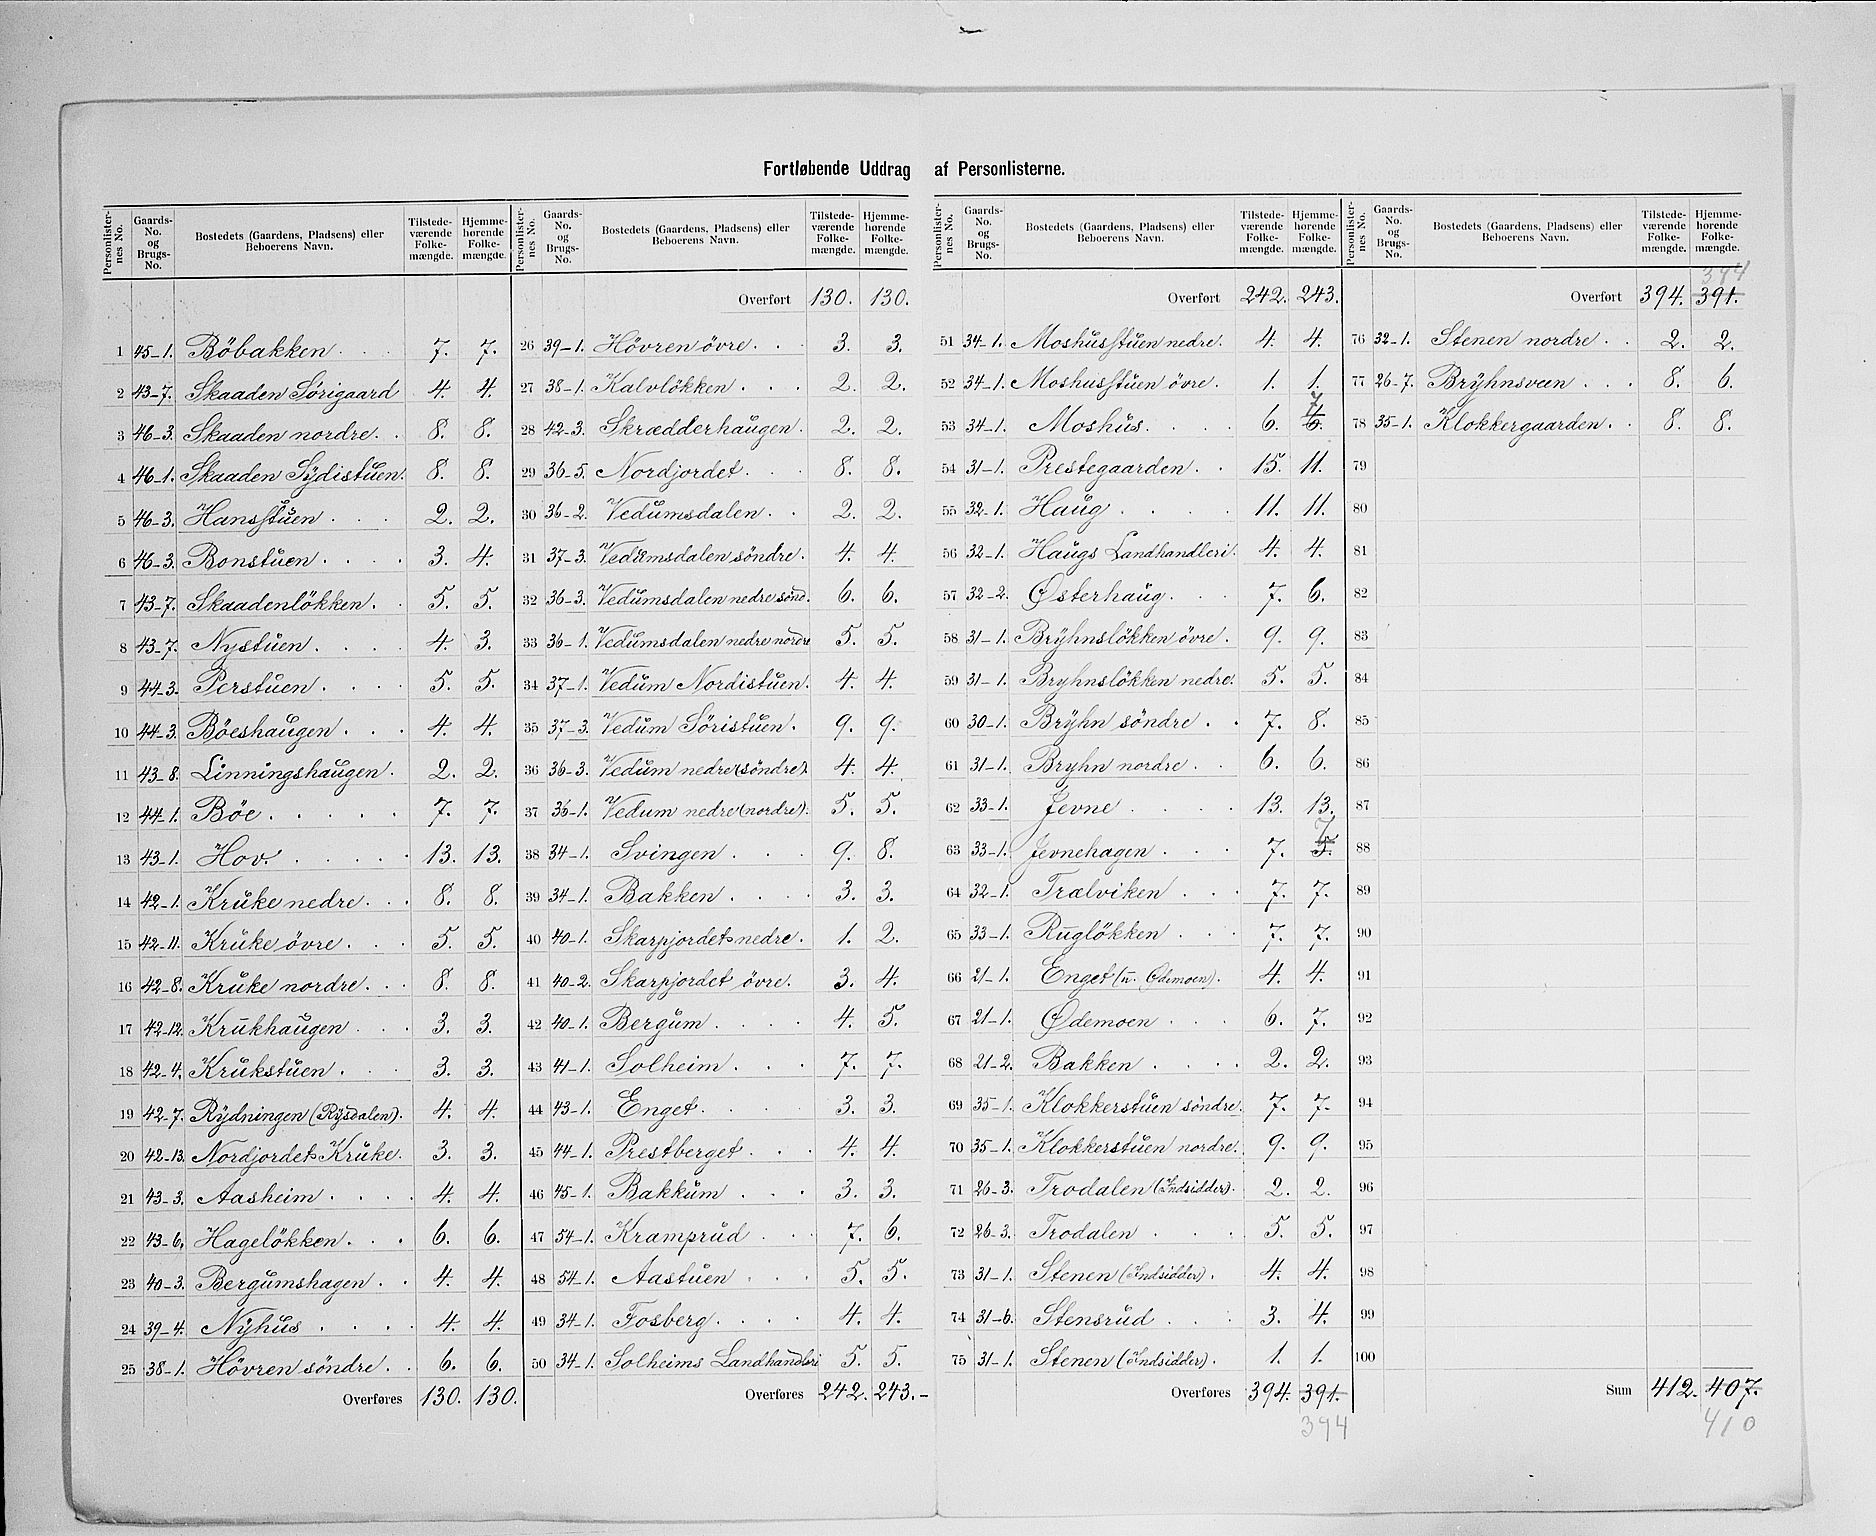 Fortløbende Uddrag af Personlisterne.
Personlister-nes No. Gaards-No. og Brugs-No. Bostedets (Gaardens, Pladsens) eller Beboerens Navn. Tilstede-værende Folke-mængde. Hjemme-hørende Folke-mængde.
1 45-1. Böbakken 7. 7.
2 43-7. Skaaden Sörigaard 4. 4.
3 46-3. Skaaden nordre 8. 8.
4 46-1. Skaaden Sÿdistuen. 8. 8.
5 46-3. Hansstuen 2. 2.
6 46-3. Bonstuen 3. 4.
7 43-7. Skaadenlökken 5. 5.
8 43-7. Nystuen 4. 3.
9 44-3. Perstuen 5. 5.
10 44-3. Böeshaugen 4. 4.
11 43-8. Linningshaugen 2. 2.
12 44-1. Böe 7. 7.
13 43-1. Hov. 13. 13.
14 42-1. Kruke nedre 8. 8.
15 42-11. Kruke övre 5. 5.
16 42-8. Kruke nordre 8. 8.
17 42-12. Krukhaugen 3. 3.
18 42-4. Krukstuen 3. 3.
19 42-7. Rÿdningen (Rÿsdalen). 4. 4.
20 42-13. Nordjordet Kruke. 3. 3.
21 43-3. Aasheim 4. 4.
22 43-6. Hagelökken 6. 6.
23 40-3. Bergumshagen 4. 4.
24 39-4. Nÿhus 4. 4.
25 38-1. Hövren söndre 6. 6.
Overføres 130. 130.
Personlister-nes No. Gaards-No. og Brugs-No. Bostedets (Gaardens, Pladsens) eller Beboerens Navn. Tilstede-værende Folke-mængde. Hjemme-hørende Folke-mængde.
Overført 130. 130.
26 39-1. Hövren övre 3. 3.
27 38-1. Kalvlökken 2. 2.
28 42-3. Skrædderhaugen. 2. 2.
29 36-5. Nordjordet 8. 8.
30 36-2. Vedumsdalen 2. 2.
31 37-3. Vedumsdalen söndre. 4. 4.
32 36-3. Vedumsdalen nedre sönd. 6. 6.
33 36-1. Vedumsdalen nedre nordre 5. 5.
34 37-1. Vedum Nordistuen. 4. 4.
35 37-3. Vedum Söristuen. 9. 9.
36 36-3. Vedum nedre (söndre). 4. 4.
37 36-1. Vedum nedre (nordre). 5. 5.
38 34-1. Svingen 9. 8.
39 34-1. Bakken 3. 3.
40 40-1. Skarpjordet nedre. 1. 2.
41 40-2. Skarpjordet övre. 3. 4.
42 40-1. Bergum 4. 5.
43 41-1. Solheim 7. 7.
44 43-1. Enget 3. 3.
45 44-1. Prestberget 4. 4.
46 45-1. Bakkum 3. 3.
47 54-1. Kramprud 7. 6.
48 54-1. Aastuen 5. 5.
49 34-1. Fosberg 4. 4.
50 34-1. Solheims Landhandleri 5. 5.
Overføres 242. 243.
Personlister-nes No. Gaards-No. og Brugs-No. Bostedets (Gaardens, Pladsens) eller Beboerens Navn. Tilstede-værende Folke-mængde. Hjemme-hørende Folke-mængde.
Overført 242. 243.
51 34-1. Moshusstuen nedre. 4. 4.
52 34-1. Moshusstuen övre. 1. 1.
53 34-1. Moshus 6. 6. 7
54 31-1. Prestegaarden 15. 11.
55 32-1. Haug 11. 11.
56 32-1. Haugs Landhandleri. 4. 4.
57 32-2. Østerhaug 7. 6.
58 31-1. Brÿhnslökken övre. 9. 9.
59 31-1. Bryhnslökken nedre. 5. 5.
60 30-1. Brÿhn söndre 7. 8.
61 31-1. Bryhn nordre 6. 6.
62 33-1. Jevne 13. 13.
63 33-1. Jevnehagen 7. 5. 7
64 32-1. Trælviken 7. 7.
65 33-1. Ruglökken 7. 7.
66 21-1. Enget (u. Ødemoen). 4. 4.
67 21-1. Ødemoen 6. 7.
68 21-2. Bakken 2. 2.
69 35-1. Klokkerstuen söndre. 7. 7.
70 35-1. Klokkerstuen nordre. 9. 9.
71 26-3. Trodalen (Indsidder). 2. 2.
72 26-3. Trodalen 5. 5.
73 31-1. Stenen (Indsidder). 4. 4.
74 31-6. Stensrud 3. 4.
75 31-1. Stenen (Indsidder). 1. 1.
Overføres 394. 391.
394
Personlister-nes No. Gaards-No. og Brugs-No. Bostedets (Gaardens, Pladsens) eller Beboerens Navn. Tilstede-værende Folke-mængde. Hjemme-hørende Folke-mængde.
394
Overført 394. 391.
76 32-1. Stenen nordre 2. 2.
77 26-7. Brÿhnsveen 8. 6.
78 35-1. Klokkergaarden 8. 8.
79
80
81
82
83
84
85
86
87
88
89
90
91
92
93
94
95
96
97
98
99
100
Sum 412. 407.
410